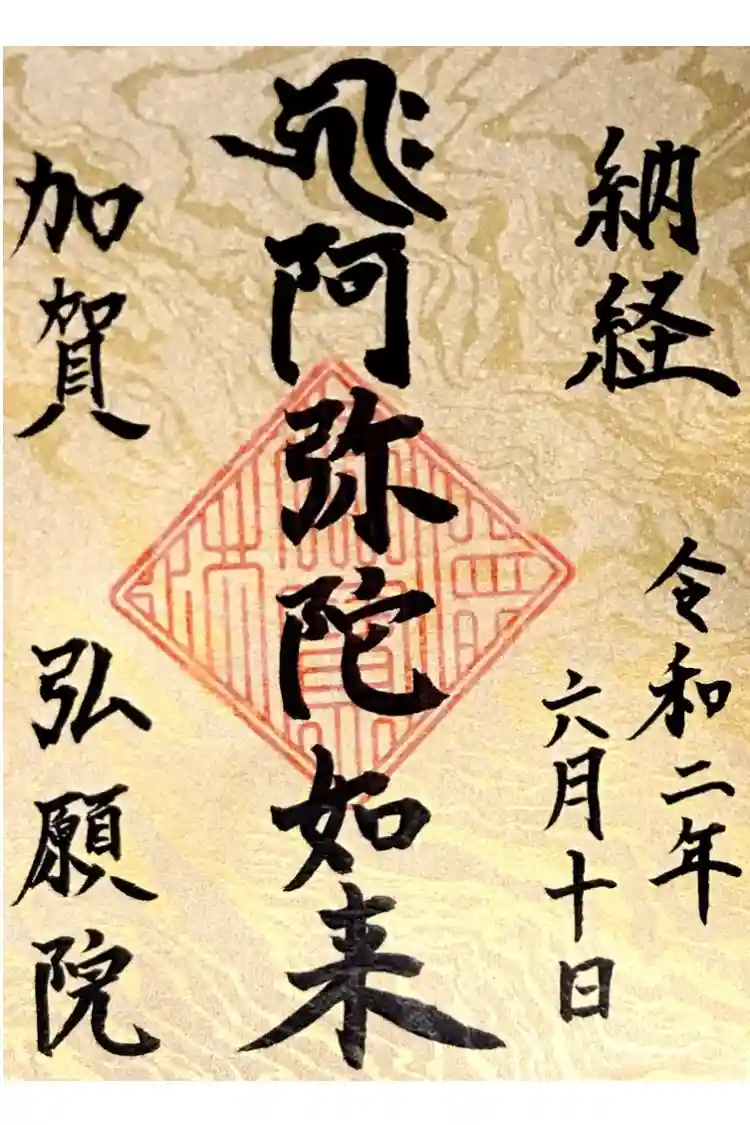 納経
令和二年
六月十日
ह्रीः阿弥陀如来
加賀
弘願院